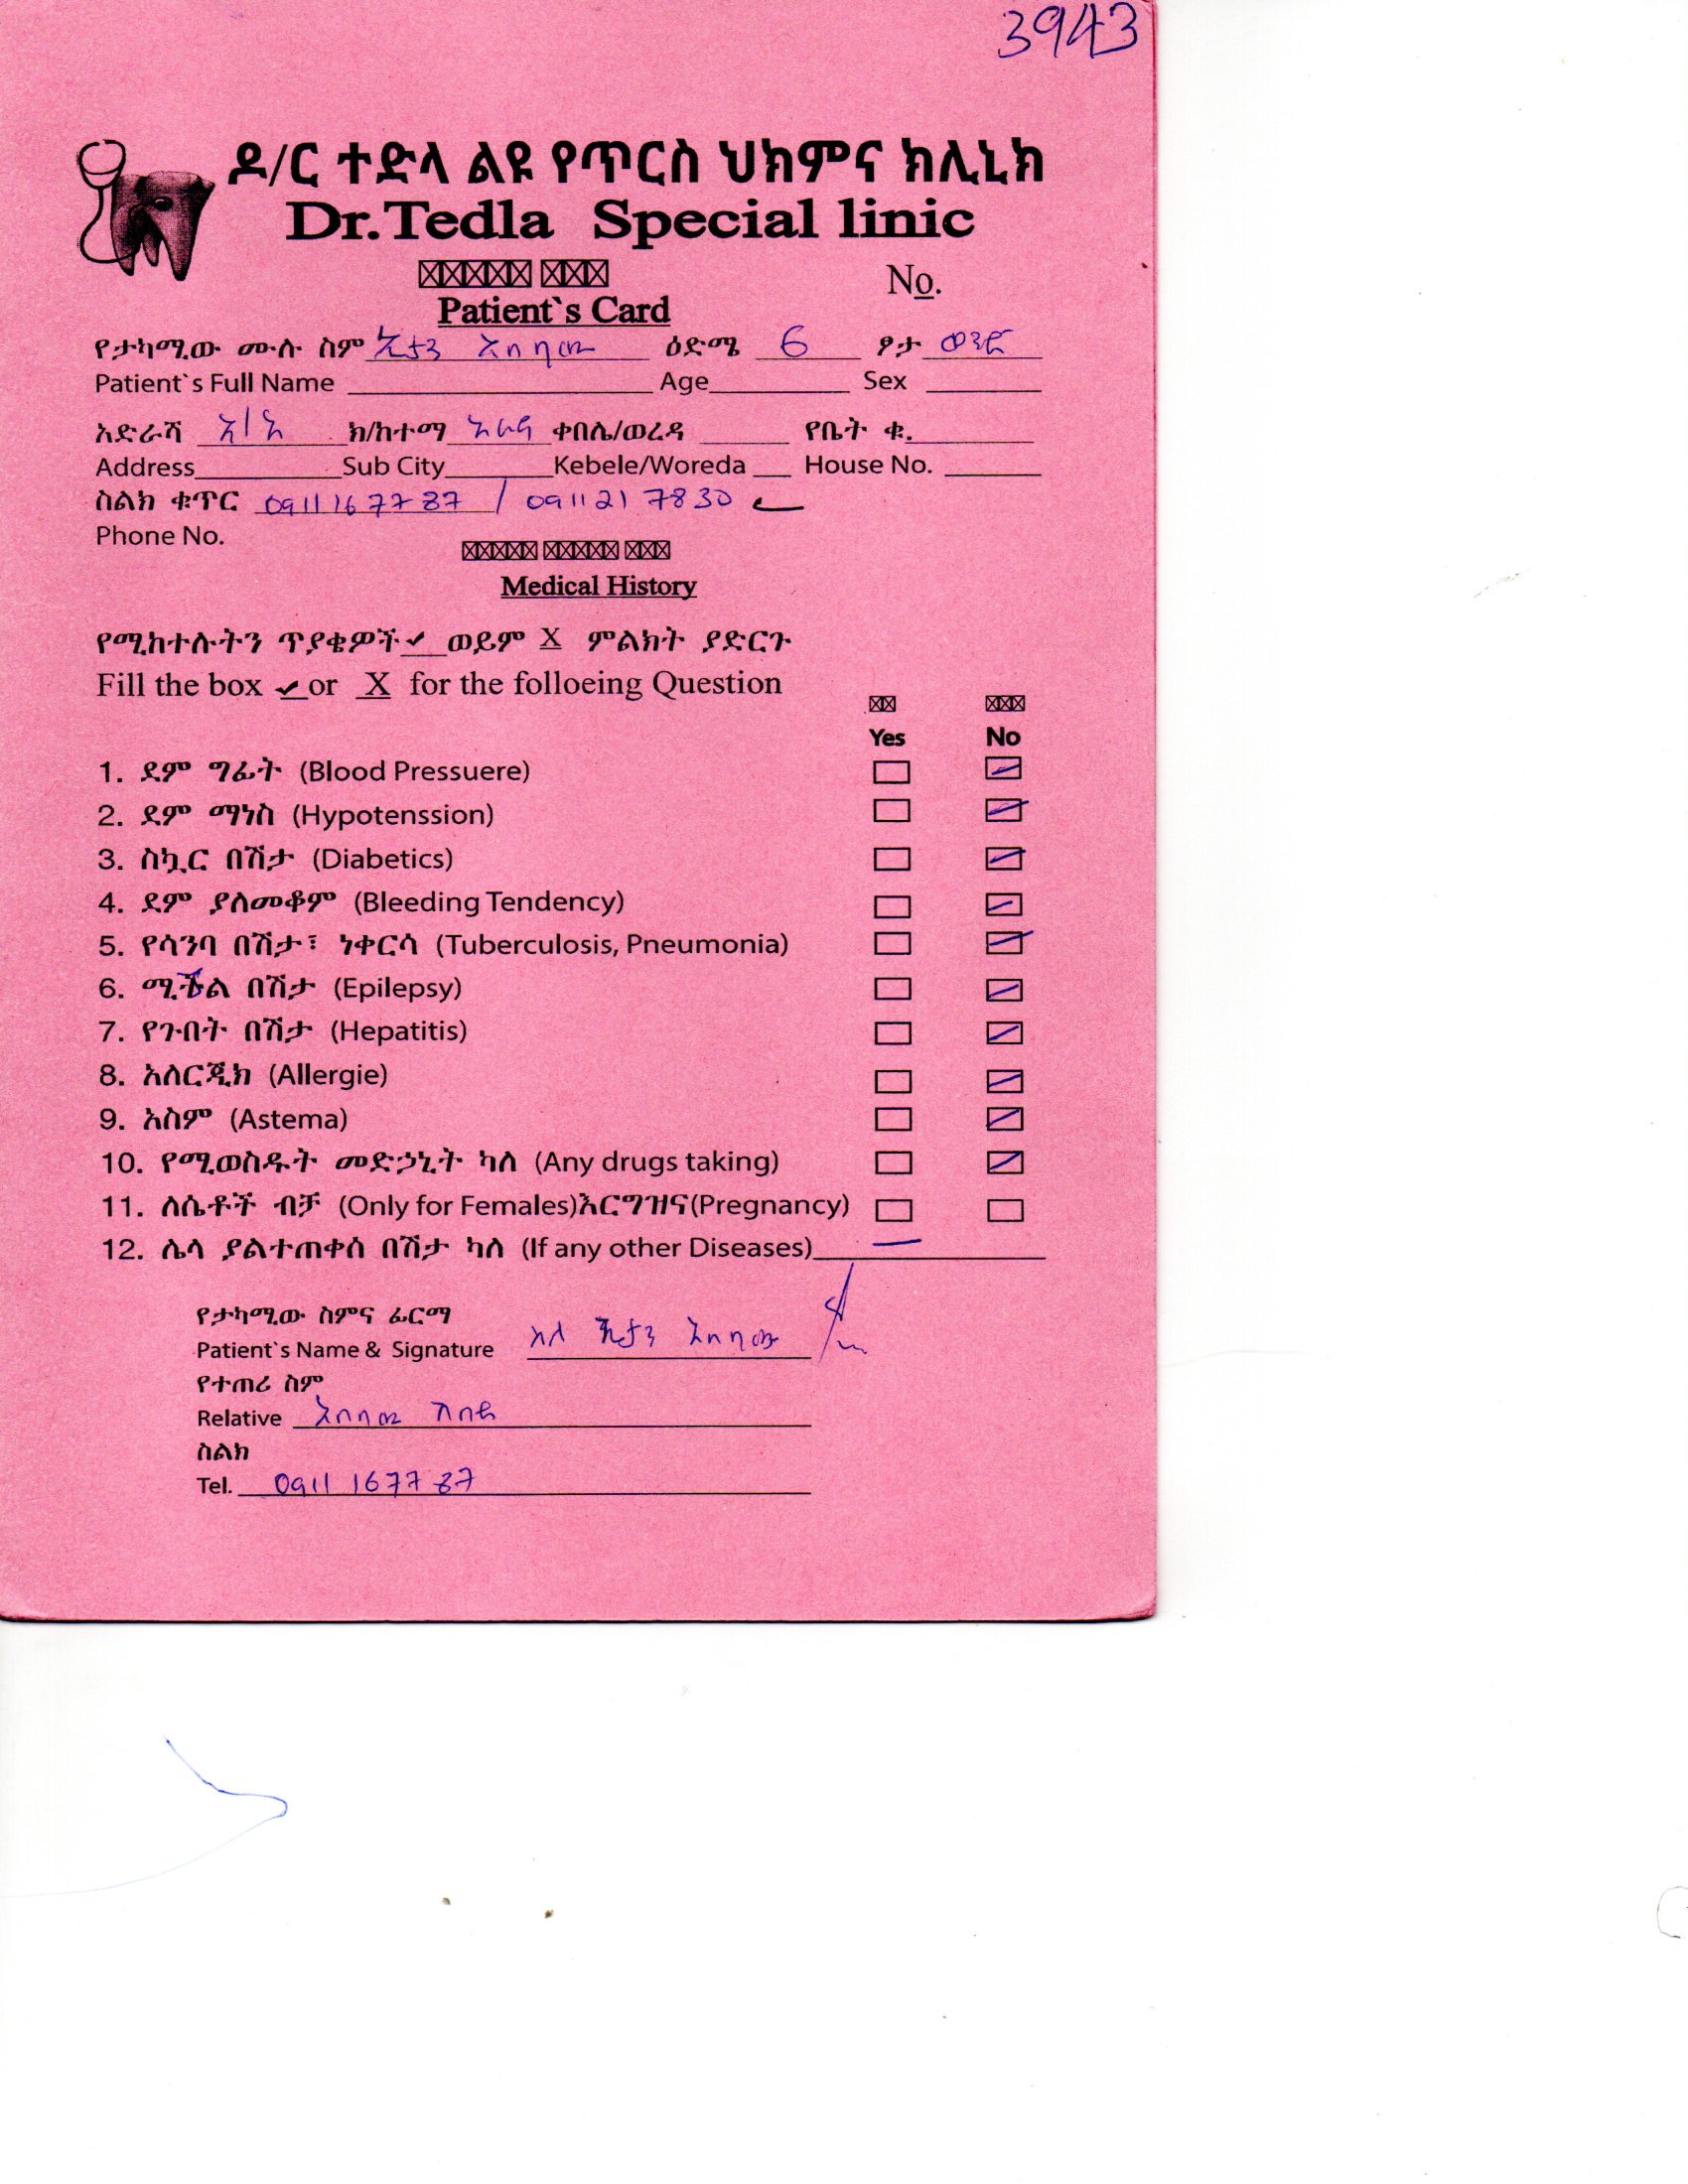 3943
ዶ/ር ተድላ ልዩ የጥርስ ህክምና ክሊኒክ
Dr.Tedla Special linic
No.
Patient`s Card
የታካሚው ሙሉ ስም ዕድሜ 6 ፆታ ወንድ
Patient`s Full Name Age Sex
አድራሻ አ/አ ክ/ከተማ አራዳ ቀበሌ/ወረዳ የቤት ቁ.
Address Sub City Kebele/Woreda House No.
ስልክ ቁጥር 0911 16 77 87 / 0911 21 78 30
Phone No.
Medical History
የሚከተሉትን ጥያቄዎች ✓ ወይም X ምልክት ያድርጉ
Fill the box ✓ or X for the folloeing Question
Yes No
1. ደም ግፊት (Blood Pressuere)
2. ደም ማነስ (Hypotenssion)
3. ስኳር በሽታ (Diabetics)
4. ደም ያለመቆም (Bleeding Tendency)
5. የሳንባ በሽታ፣ ነቀርሳ (Tuberculosis, Pneumonia)
6. በሽታ (Epilepsy)
7. የጉበት በሽታ (Hepatitis)
8. አለርጂክ (Allergie)
9. አስም (Astema)
10. የሚወስዱት መድኃኒት ካለ (Any drugs taking)
11. ለሴቶች ብቻ (Only for Females)እርግዝና(Pregnancy)
12. ሌላ ያልተጠቀሰ በሽታ ካለ (If any other Diseases)
የታካሚው ስምና ፊርማ
Patient`s Name & Signature
የተጠሪ ስም
Relative
ስልክ
Tel. 0911 16 77 87